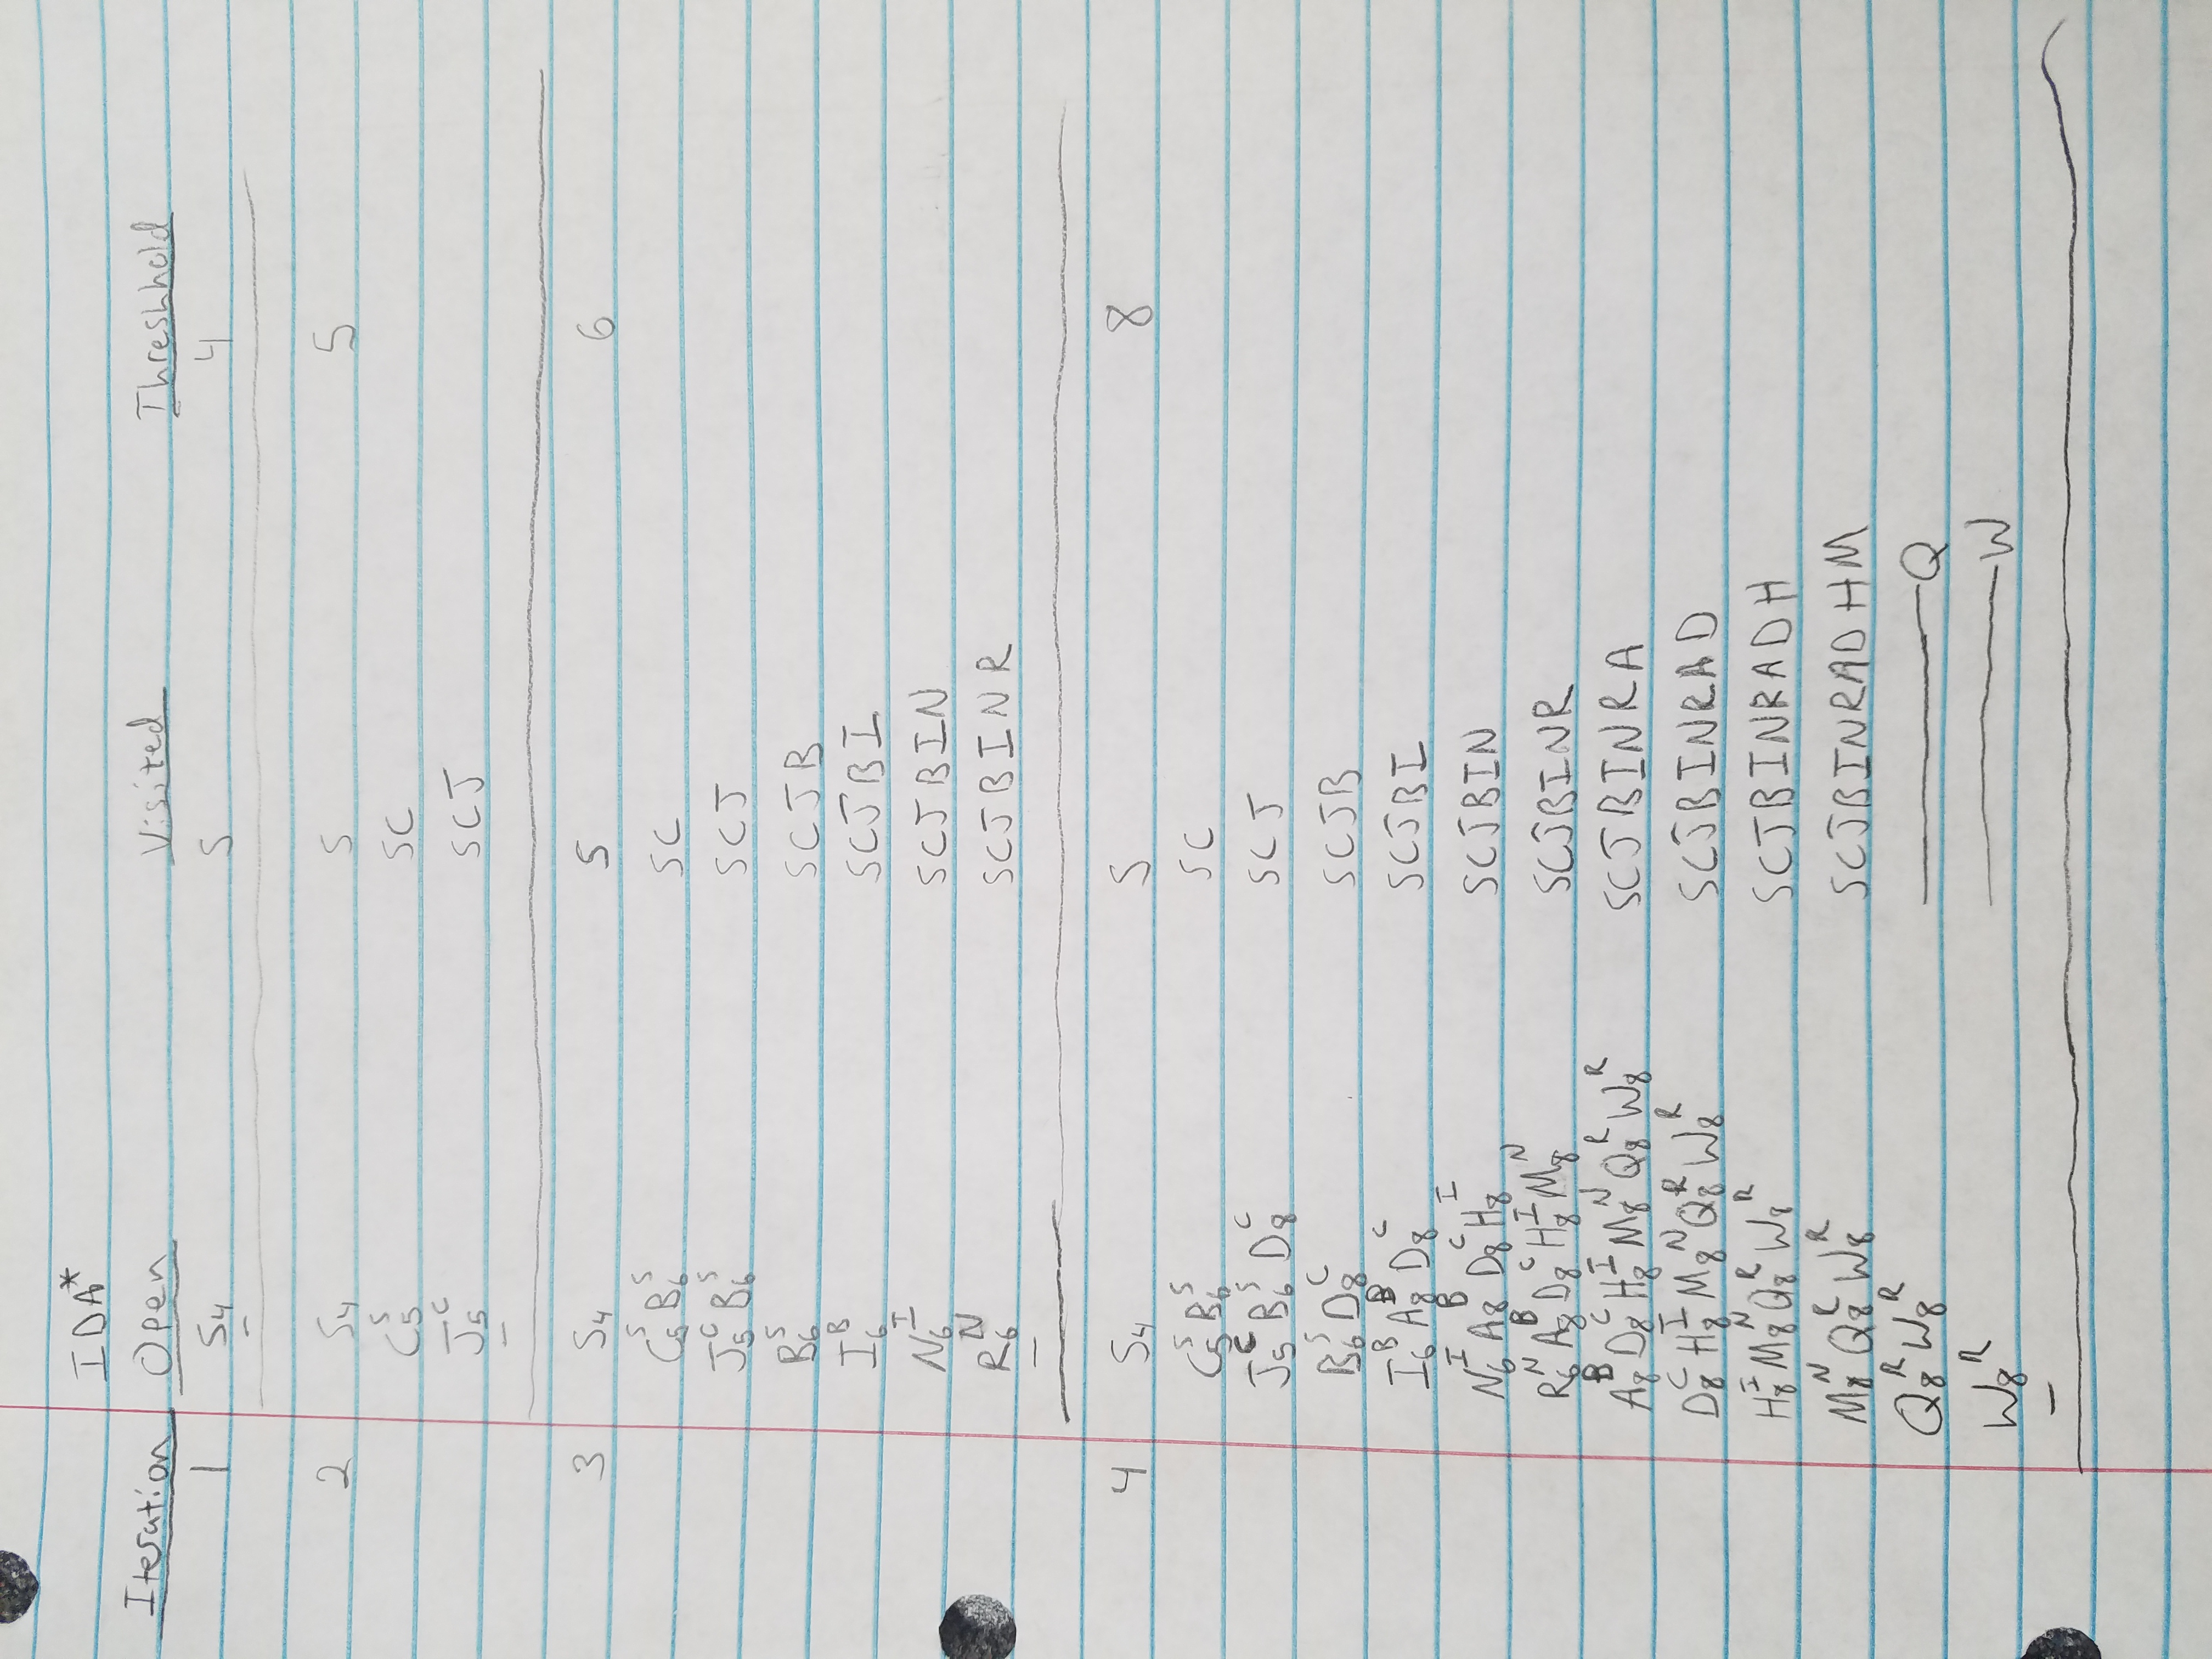 IDA*
Iteration Open Visited Threshhold
1 S₄ S 4
–
2 S₄ S 5
C₅ˢ SC
J₅ᶜ SCJ
–
3 S₄ S 6
C₅ˢ B₆ˢ SC
J₅ᶜ B₆ˢ SCJ
B₆ˢ SCJB
I₆ᴮ SCJBI
N₆ᴵ SCJBIN
R₆ᴺ SCJBINR
–
4 S₄ S 8
C₅ˢ B₆ˢ SC
J₅ᶜ B₆ˢ D₈ᶜ SCJ
B₆ˢ D₈ᶜ SCJB
I₆ᴮ A₈ᴮ D₈ᶜ SCJBI
N₆ᴵ A₈ᴮ D₈ᶜ H₈ᴵ SCJBIN
R₆ᴺ A₈ᴮ D₈ᶜ H₈ᴵ M₈ᴺ SCJBINR
A₈ᴮ D₈ᶜ H₈ᴵ M₈ᴺ Q₈ᴿ W₈ᴿ SCJBINRA
D₈ᶜ H₈ᴵ M₈ᴺ Q₈ᴿ W₈ᴿ SCJBINRAD
H₈ᴵ M₈ᴺ Q₈ᴿ W₈ᴿ SCJBINRADH
M₈ᴺ Q₈ᴿ W₈ᴿ SCJBINRADHM
Q₈ᴿ W₈ᴿ ——— Q
W₈ᴿ ——— W
–